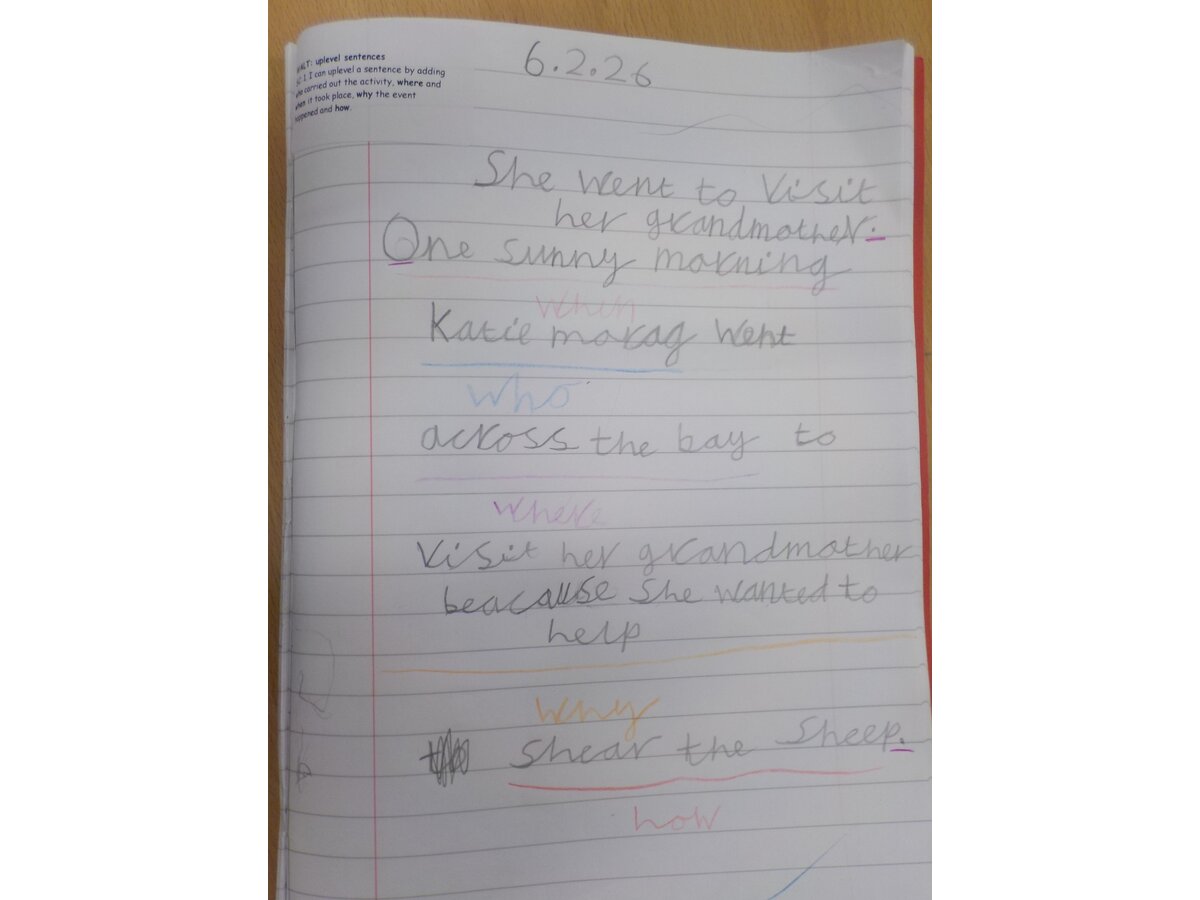 WALT: uplevel sentences
SC 1 I can uplevel a sentence by adding
who carried out the activity, where and
when it took place, why the event
happened and how.
6.2.26
She went to Visit
her grandmother.
One sunny morning
when
Katie morag went
who
across the bay to
where
Visit her grandmother
beacause She wanted to
help
why
shear the Sheep.
how